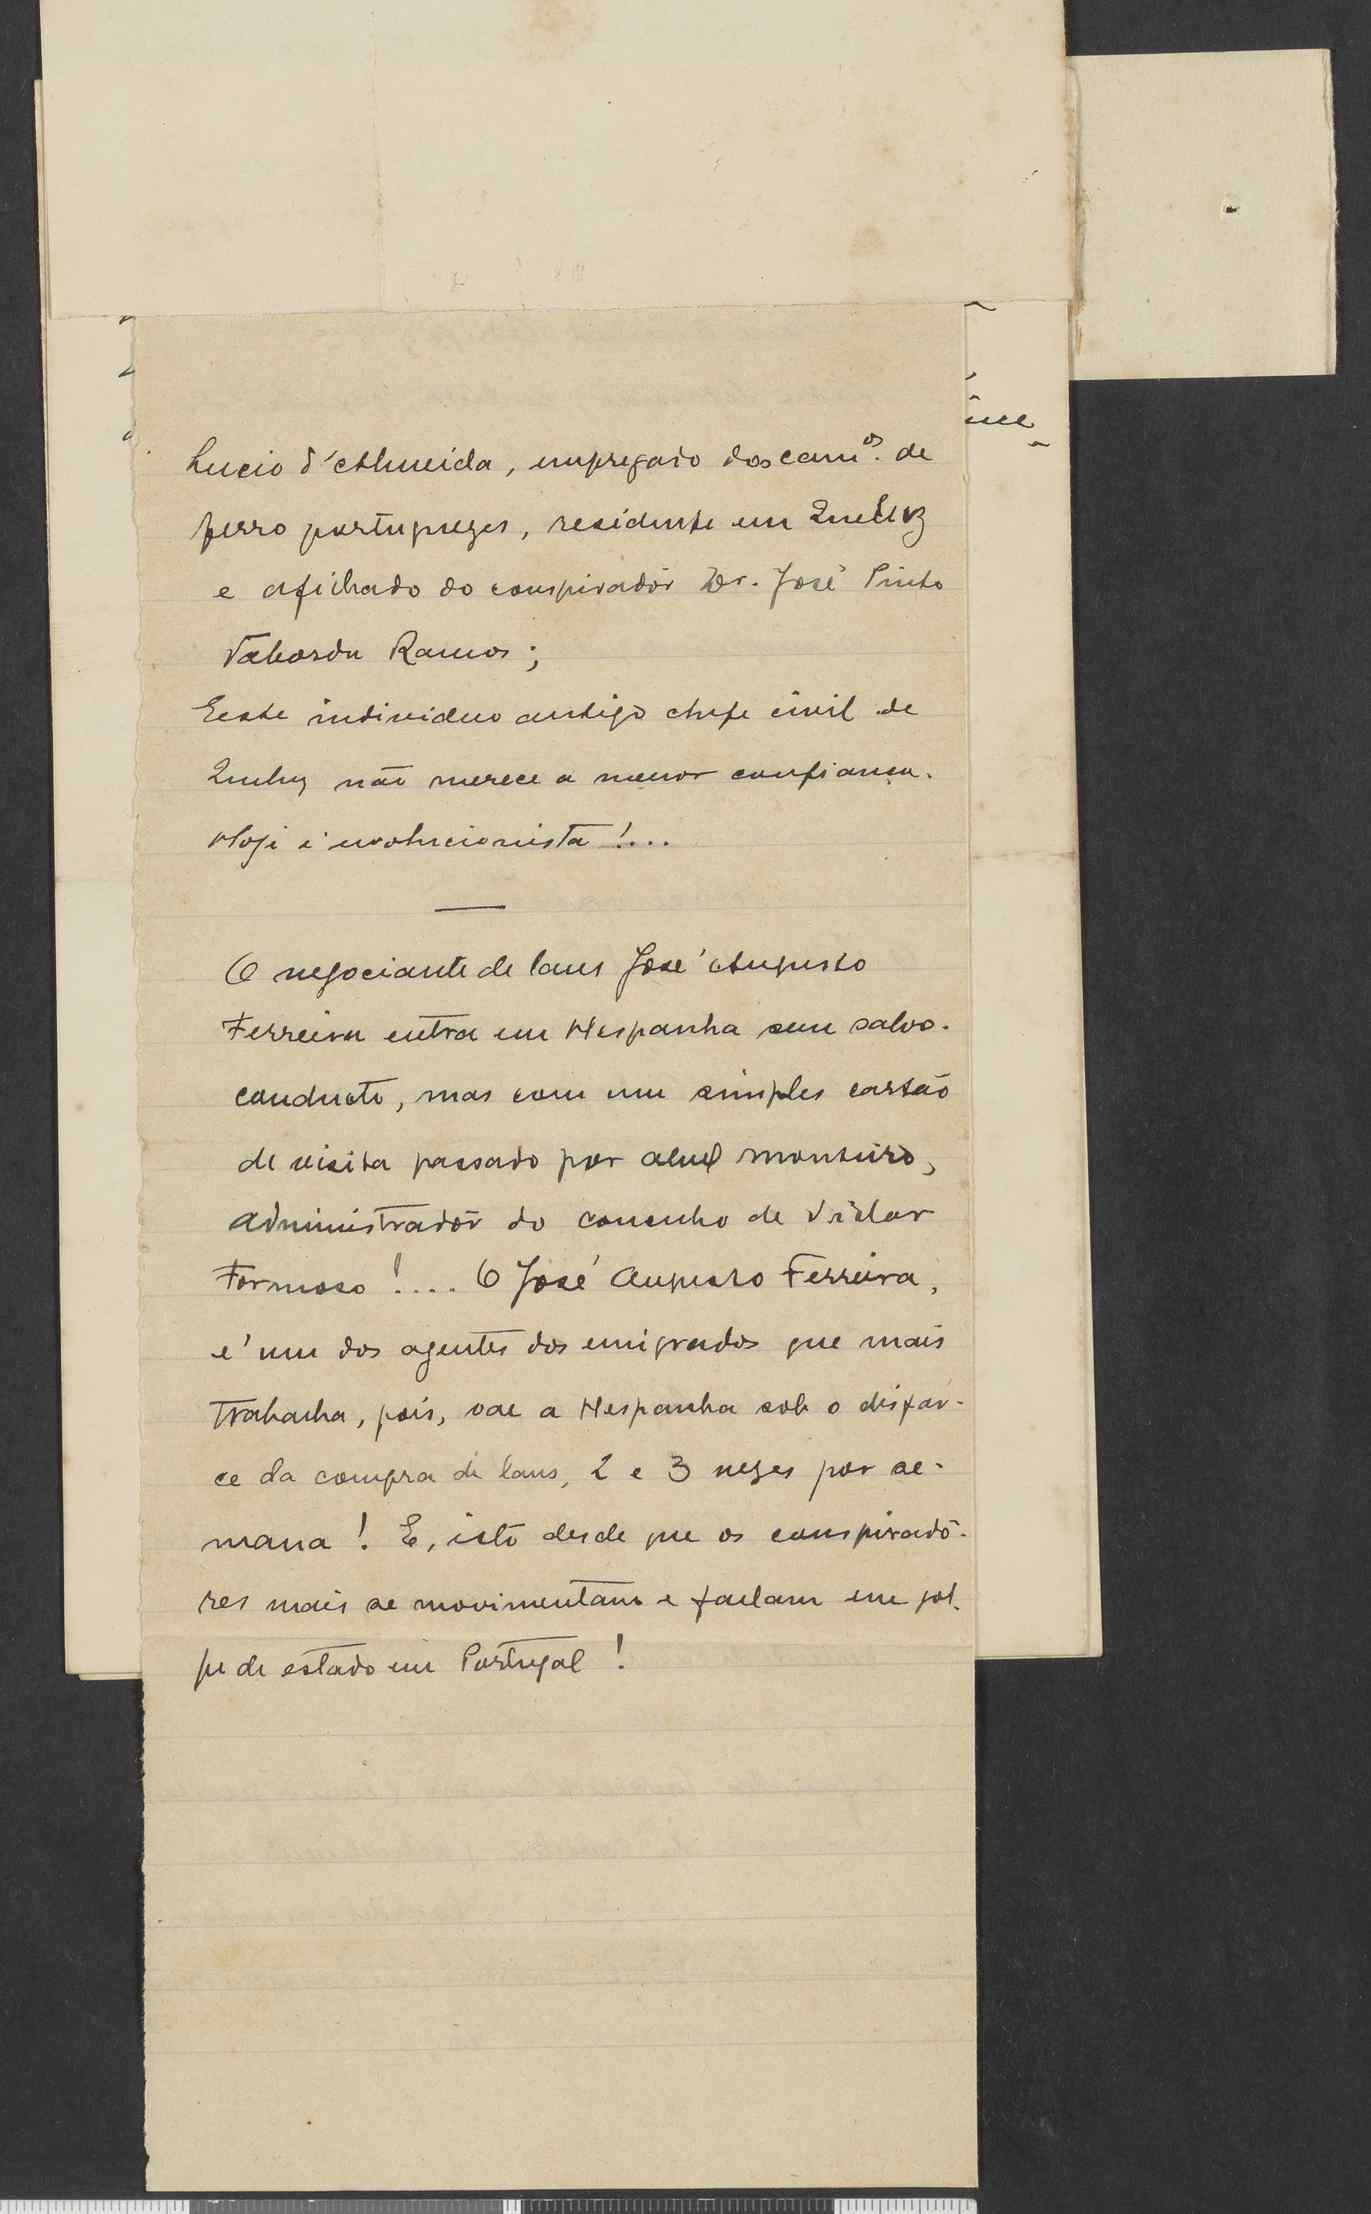 Lucio d'Almeida, empregado dos cam.os de
ferro portuguezes, residente em Queluz
e afilhado do conspiradôr Dr. José Pinto
Taborda Ramos;
Eeste individuo antigo chefe civil de
Queluz não merece a menor confiança.
Hoje é evolucionista!...
—
O negociante de lans José Augusto
Ferreira entra em Hespanha sem salvo-
conducto, mas com um simples cartão
de visita passado por Abel Monteiro,
administradôr do concelho de Vilar
Formoso!.... O José Augusto Ferreira,
é um dos agentes dos emigrados que mais
trabalha, pois, vae a Hespanha sob o disfar-
ce da compra de lans, 2 e 3 vezes por se-
mana! E, isto desde que os conspiradô-
res mais se movimentam e fallam em gol-
pe de estado em Portugal!